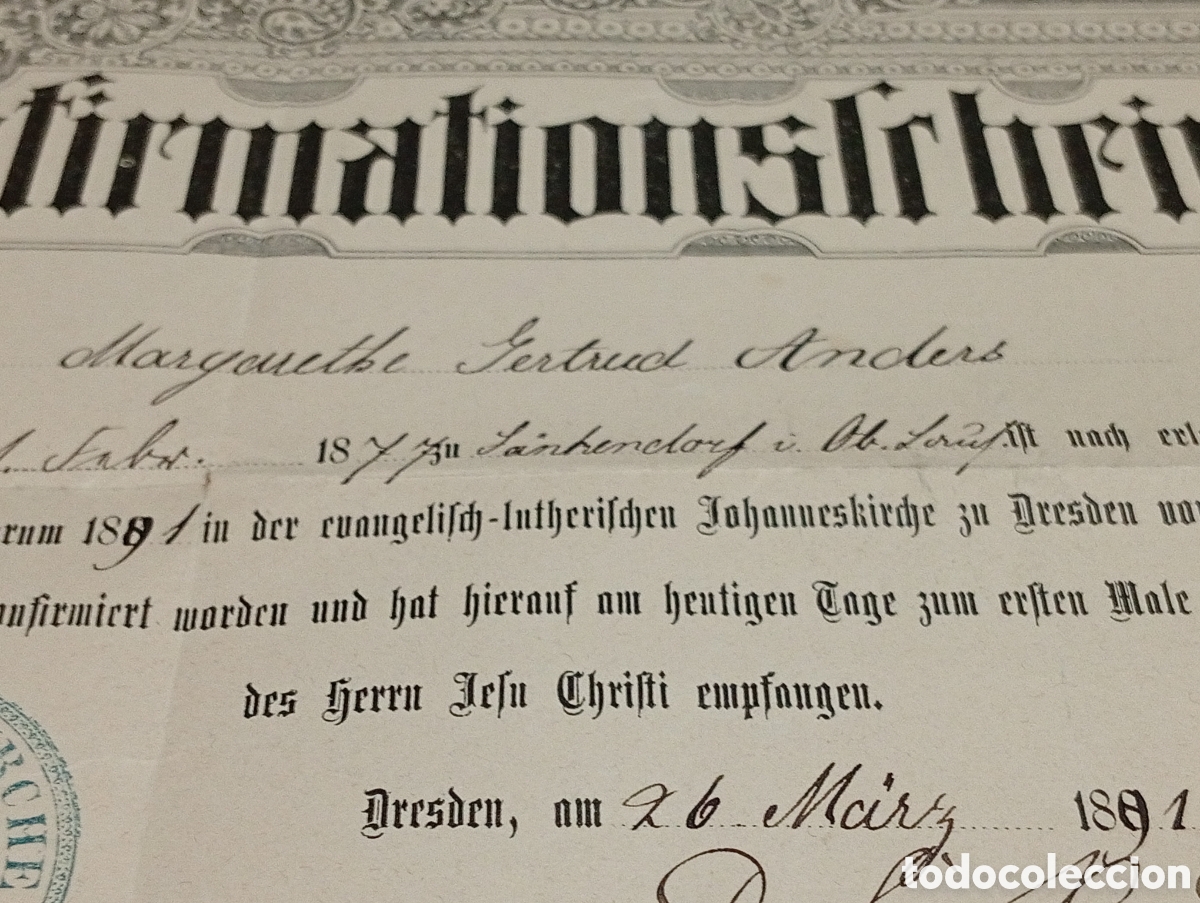 firmationsschei
Margarethe Gertrud Anders
1. Febr. 1877 zu i. Ob. ist nach erl
rum 1891 in der evangelisch-lutherischen Johanneskirche zu Dresden vor
nfirmiert worden und hat hierauf am heutigen Tage zum ersten Male
des Herrn Jesu Christi empfangen.
RCHE
Dresden, am 26 März 1891
todocoleccion